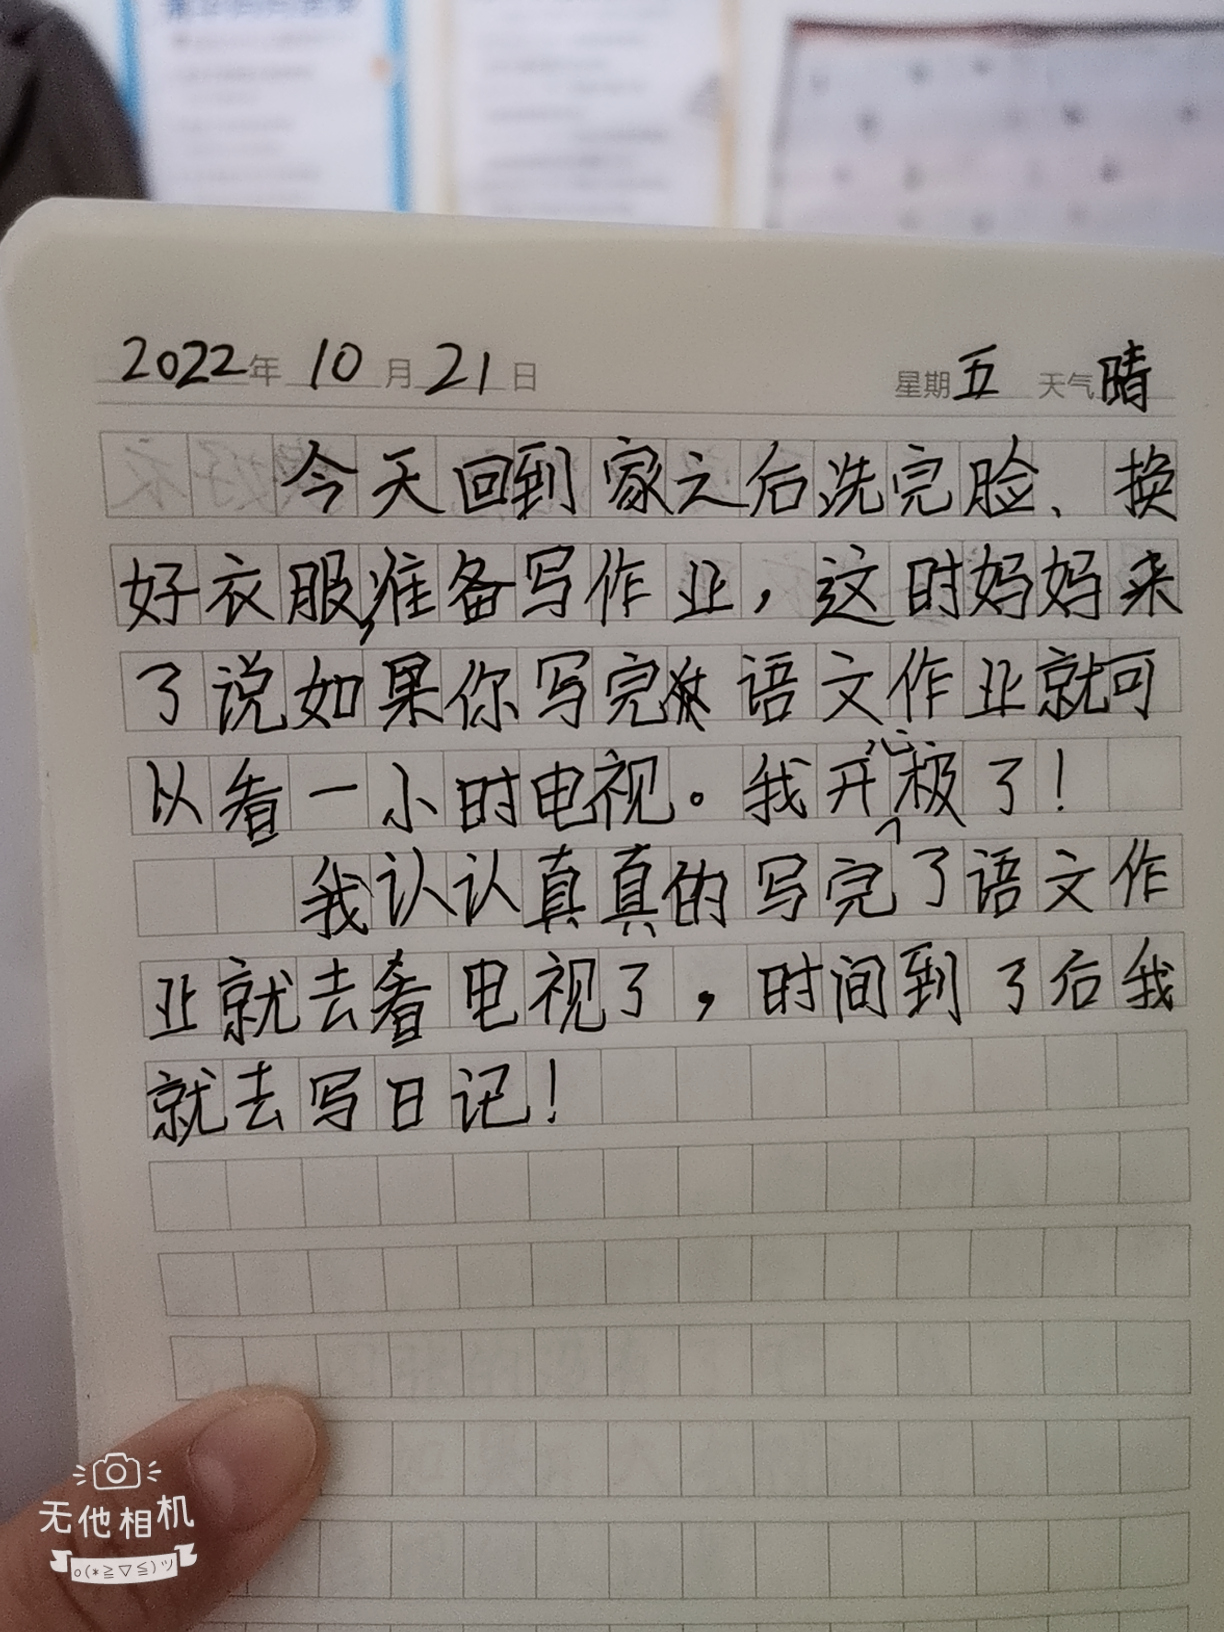 2022年10月21日 星期五 天气晴
今天回到家之后洗完脸、换
好衣服,准备写作业，这时妈妈来
了说如果你写完 语文作业就可
以看一小时电视。我开心极了！
我认认真真的写完了语文作
业就去看电视了，时间到了后我
就去写日记！
无他相机
o(*≧▽≦)ツ